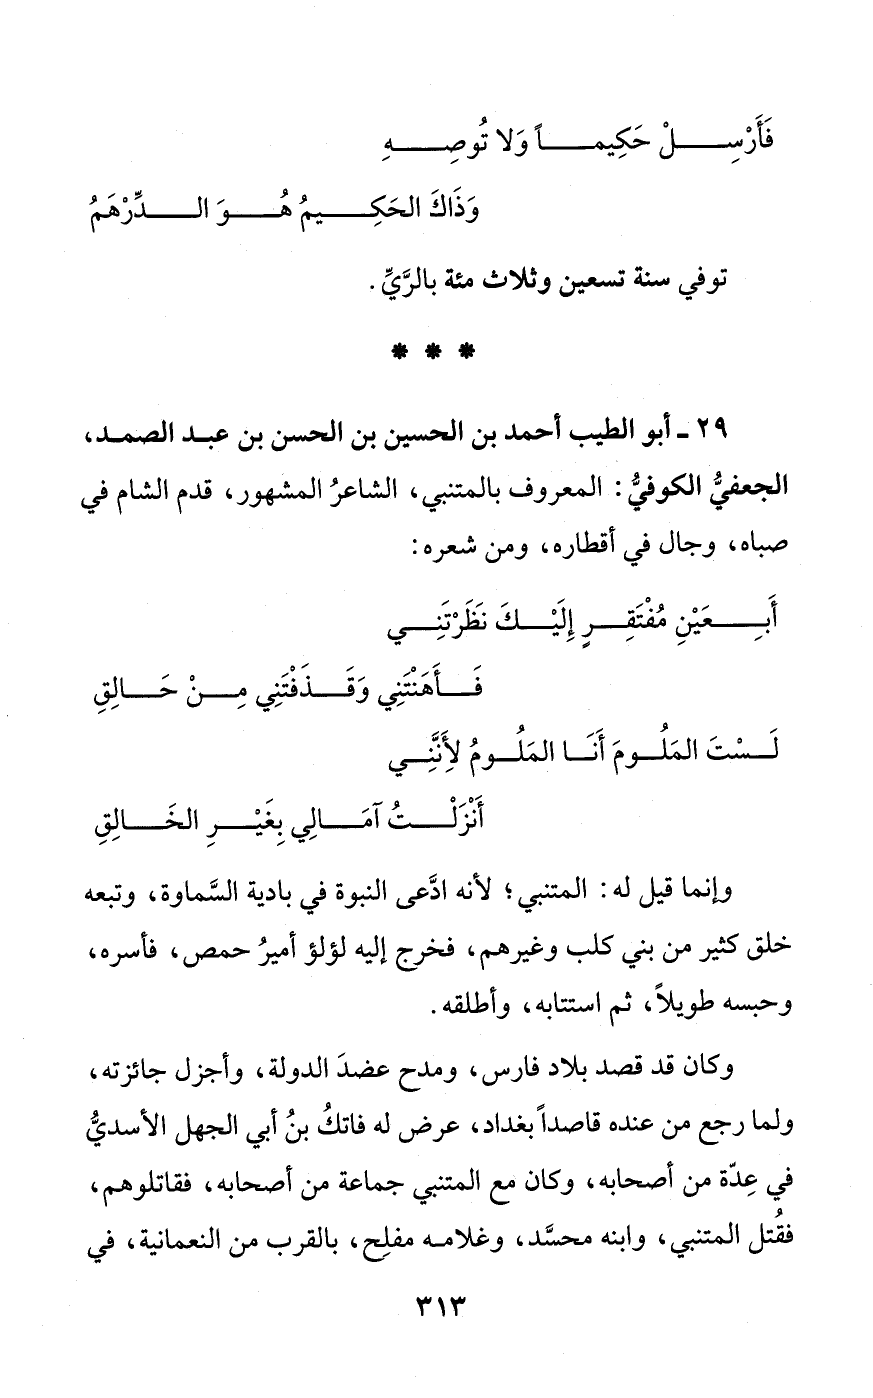 فَأَرْسِلْ حَكِيماً وَلا تُوصِهِ
وَذَاكَ الحَكِيمُ هُوَ الدِّرْهَمُ
توفي سنة تسعين وثلاث مئة بالرَّيِّ.
* * *
٢٩ ـ أبو الطيب أحمد بن الحسين بن الحسن بن عبد الصمد،
الجعفيُّ الكوفيُّ: المعروف بالمتنبي، الشاعرُ المشهور، قدم الشام في
صباه، وجال في أقطاره، ومن شعره:
أَبِعَيْنِ مُفْتَقِرٍ إِلَيْكَ نَظَرْتَنِي
فَأَهَنْتَنِي وَقَذَفْتَنِي مِنْ حَالِقِ
لَسْتَ المَلُومَ أَنَا المَلُومُ لأَِنَّنِي
أَنْزَلْتُ آمَالِي بِغَيْرِ الخَالِقِ
وإنما قيل له: المتنبي؛ لأنه ادَّعى النبوة في بادية السَّماوة، وتبعه
خلق كثير من بني كلب وغيرهم، فخرج إليه لؤلؤ أميرُ حمص، فأسره،
وحبسه طويلاً، ثم استتابه، وأطلقه.
وكان قد قصد بلاد فارس، ومدح عضدَ الدولة، وأجزل جائزته،
ولما رجع من عنده قاصداً بغداد، عرض له فاتكُ بنُ أبي الجهل الأسديُّ
في عِدّة من أصحابه، وكان مع المتنبي جماعة من أصحابه، فقاتلوهم،
فقُتل المتنبي، وابنه محسَّد، وغلامه مفلح، بالقرب من النعمانية، في
٣١٣